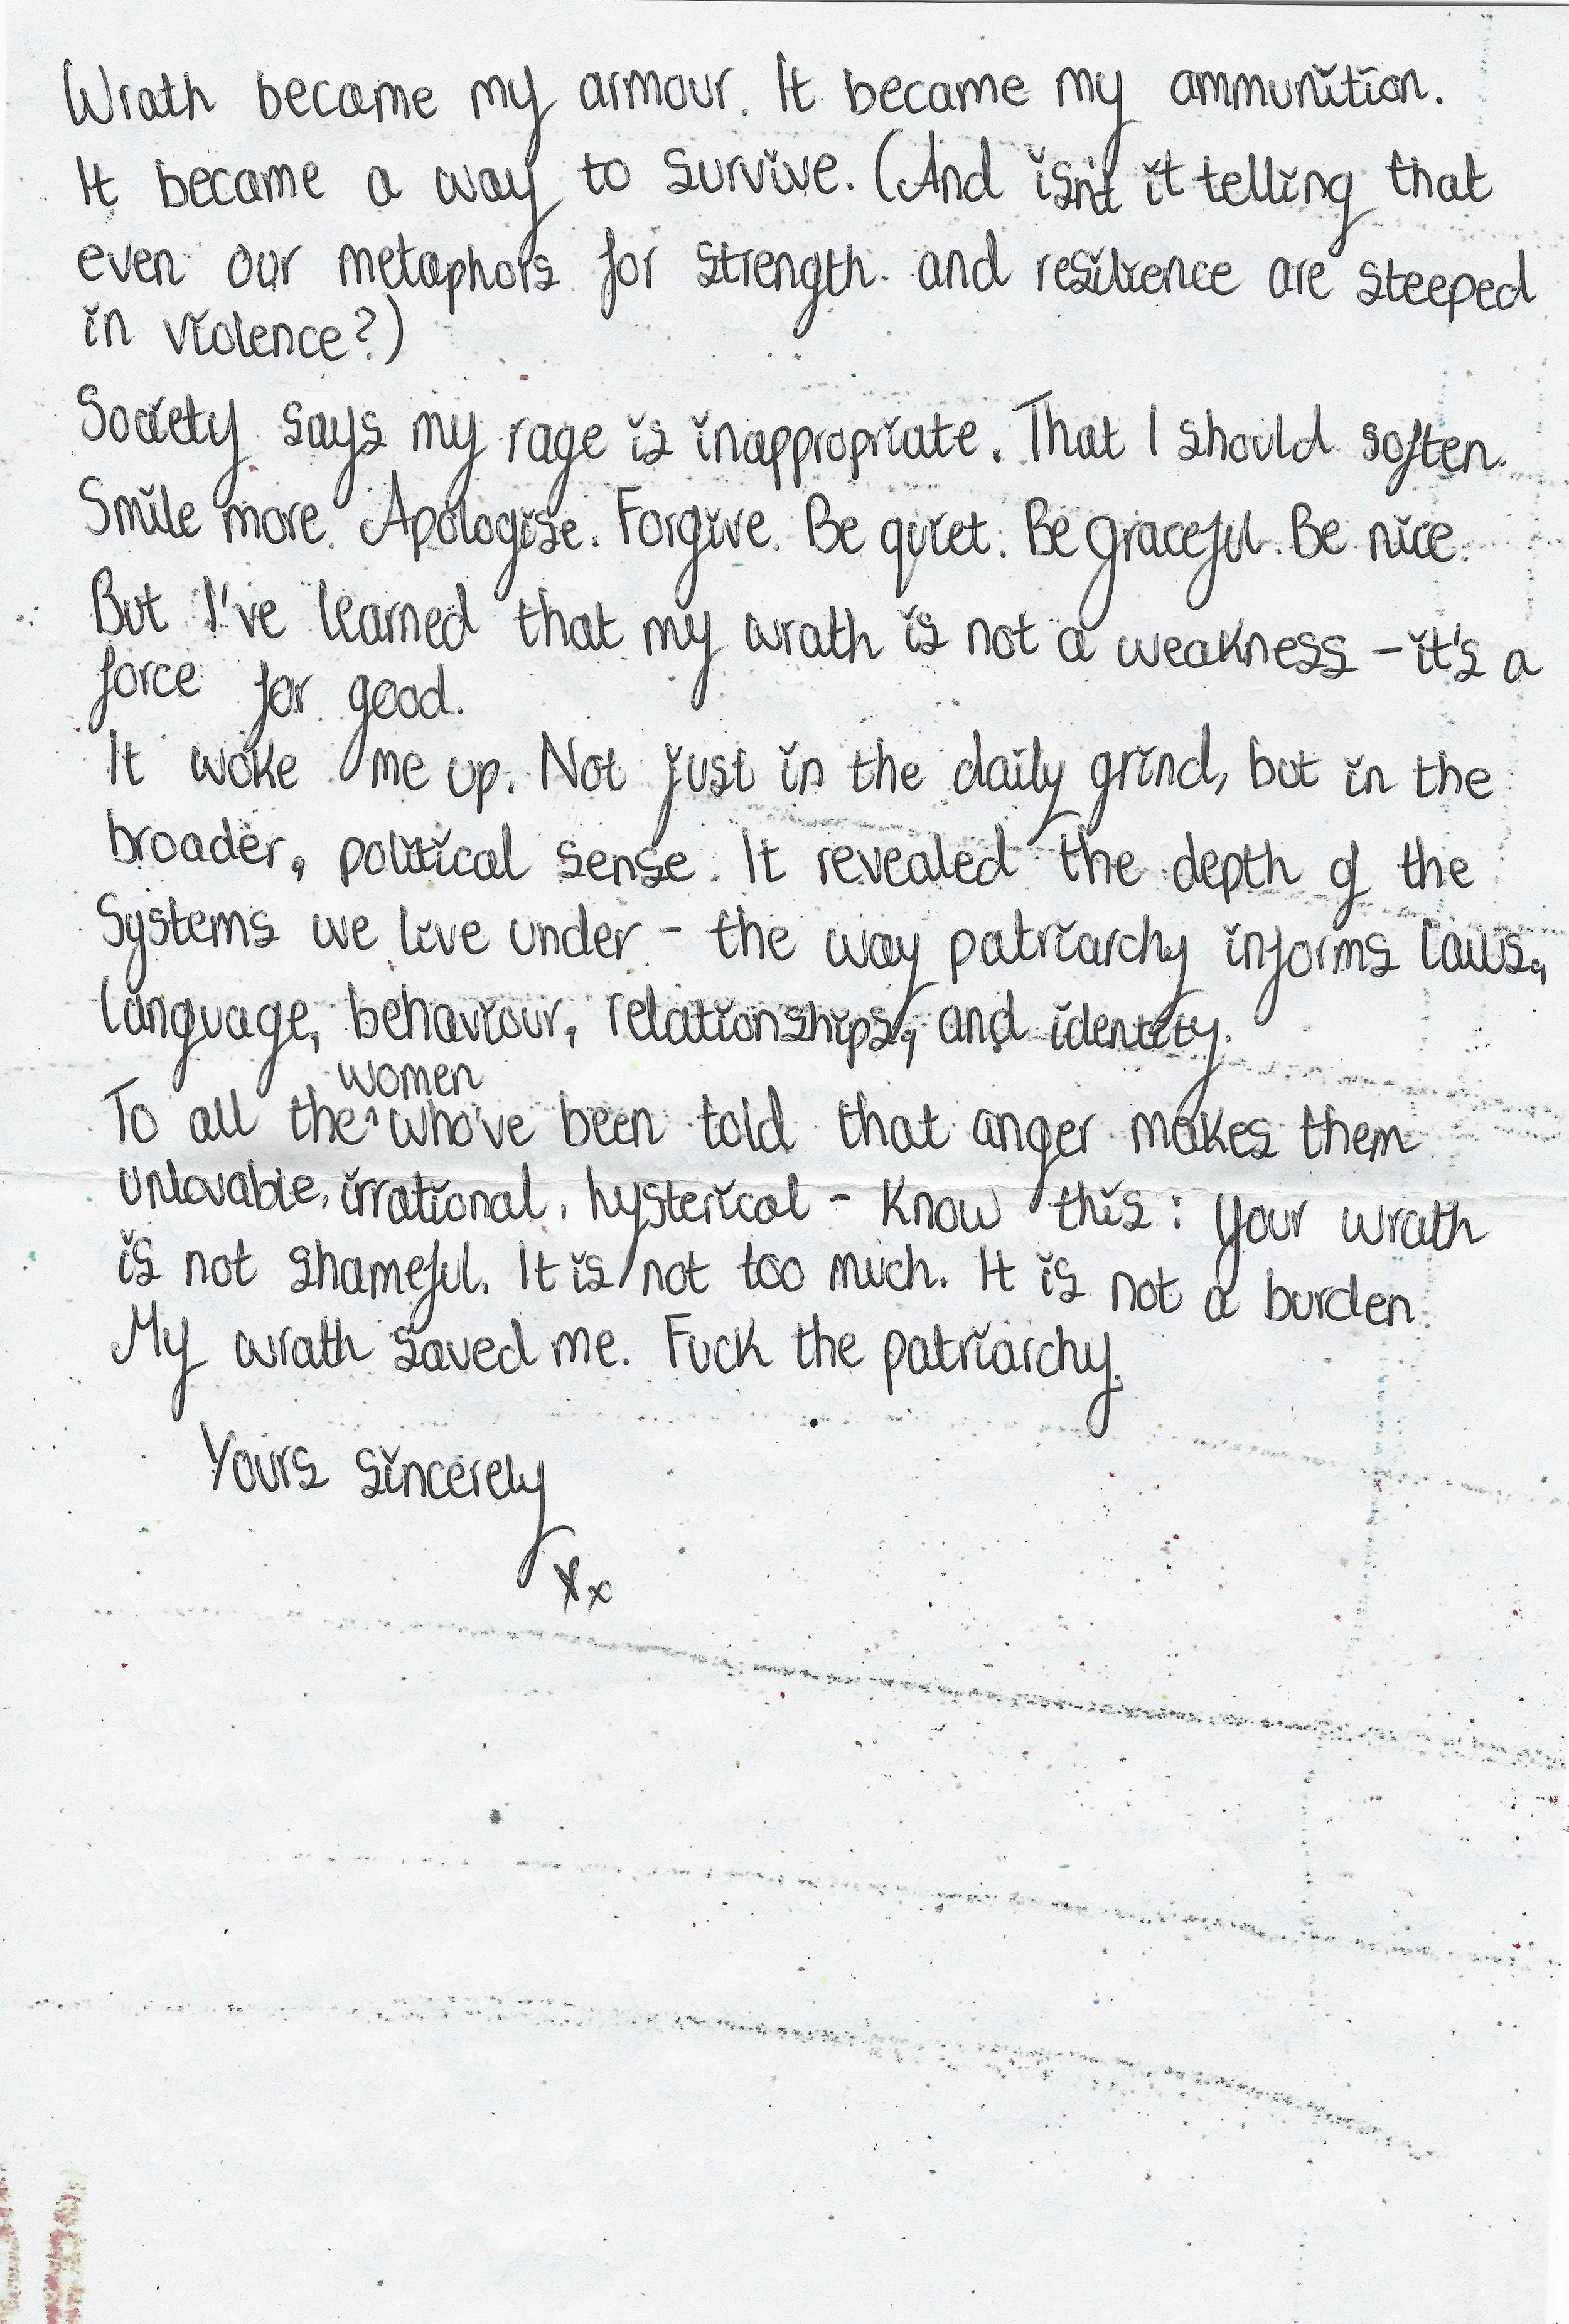 Wrath became my armour. It became my ammunition.
It became a way to survive. (And isn't it telling that
even our metaphors for strength and resilience are steeped
in violence?)
Society says my rage is inappropriate. That I should soften.
Smile more. Apologise. Forgive. Be quiet. Be graceful. Be nice.
But I've learned that my wrath is not a weakness - it's a
force for good.
It woke me up. Not just in the daily grind, but in the
broader, political sense. It revealed the depth of the
systems we live under - the way patriarchy informs laws,
language, behaviour, relationships, and identity.
women
To all the ^ who've been told that anger makes them
unlovable, irrational, hysterical - know this: your wrath
is not shameful. It is not too much. It is not a burden.
My wrath saved me. Fuck the patriarchy.
Yours sincerely
Xx